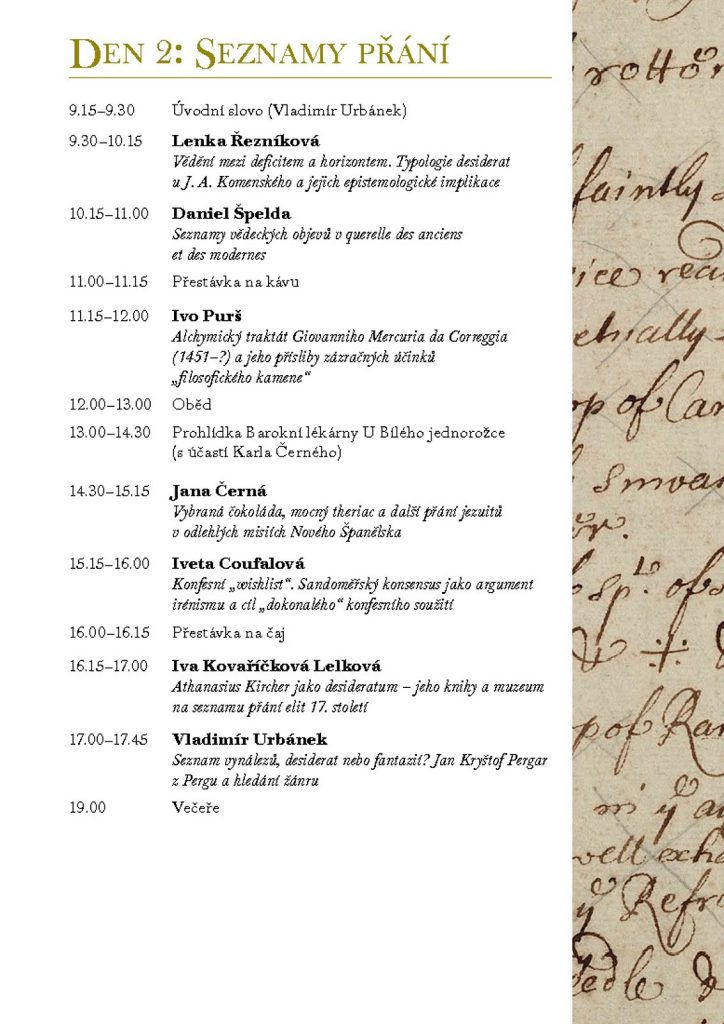 Den 2: Seznamy přání
9.15–9.30 Úvodní slovo (Vladimír Urbánek)
9.30–10.15 Lenka Řezníková
Vědění mezi deficitem a horizontem. Typologie desiderat
u J. A. Komenského a jejich epistemologické implikace
10.15–11.00 Daniel Špelda
Seznamy vědeckých objevů v querelle des anciens
et des modernes
11.00–11.15 Přestávka na kávu
11.15–12.00 Ivo Purš
Alchymický traktát Giovanniho Mercuria da Correggia
(1451–?) a jeho přísliby zázračných účinků
„filosofického kamene“
12.00–13.00 Oběd
13.00–14.30 Prohlídka Barokní lékárny U Bílého jednorožce
(s účastí Karla Černého)
14.30–15.15 Jana Černá
Vybraná čokoláda, mocný theriac a další přání jezuitů
v odlehlých misiích Nového Španělska
15.15–16.00 Iveta Coufalová
Konfesní „wishlist“. Sandoměřský konsensus jako argument
irénismu a cíl „dokonalého“ konfesního soužití
16.00–16.15 Přestávka na čaj
16.15–17.00 Iva Kovaříčková Lelková
Athanasius Kircher jako desideratum – jeho knihy a muzeum
na seznamu přání elit 17. století
17.00–17.45 Vladimír Urbánek
Seznam vynálezů, desiderat nebo fantazií? Jan Kryštof Pergar
z Pergu a hledání žánru
19.00 Večeře
faintly
of